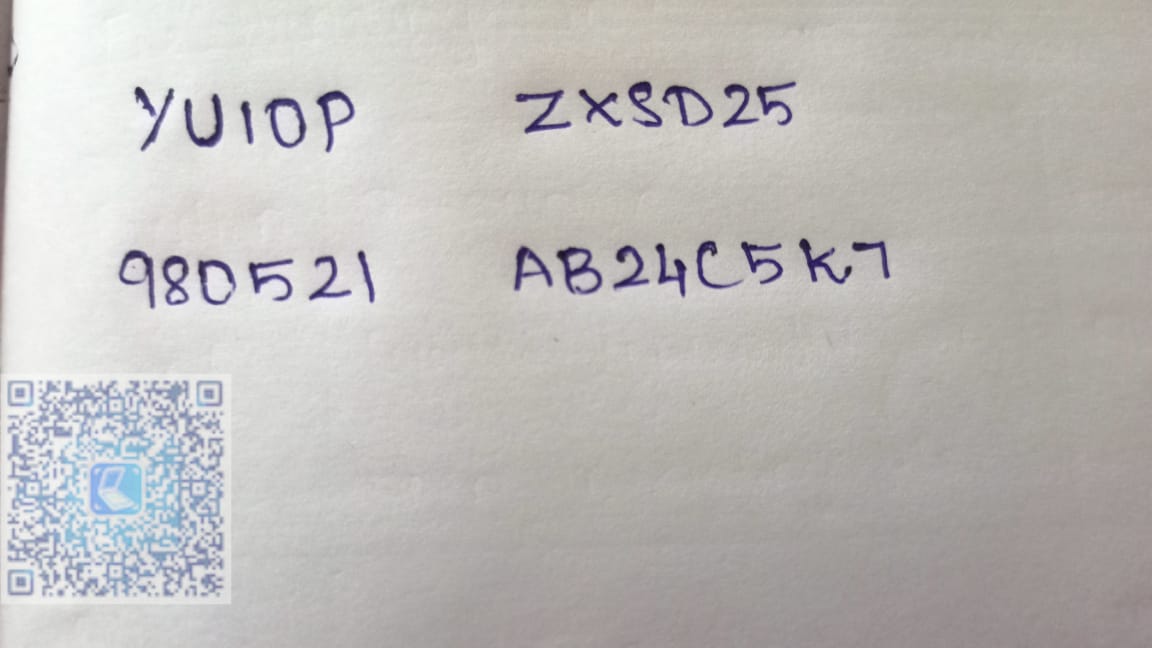 YUIOP ZXSD25
980521 AB24C5K7